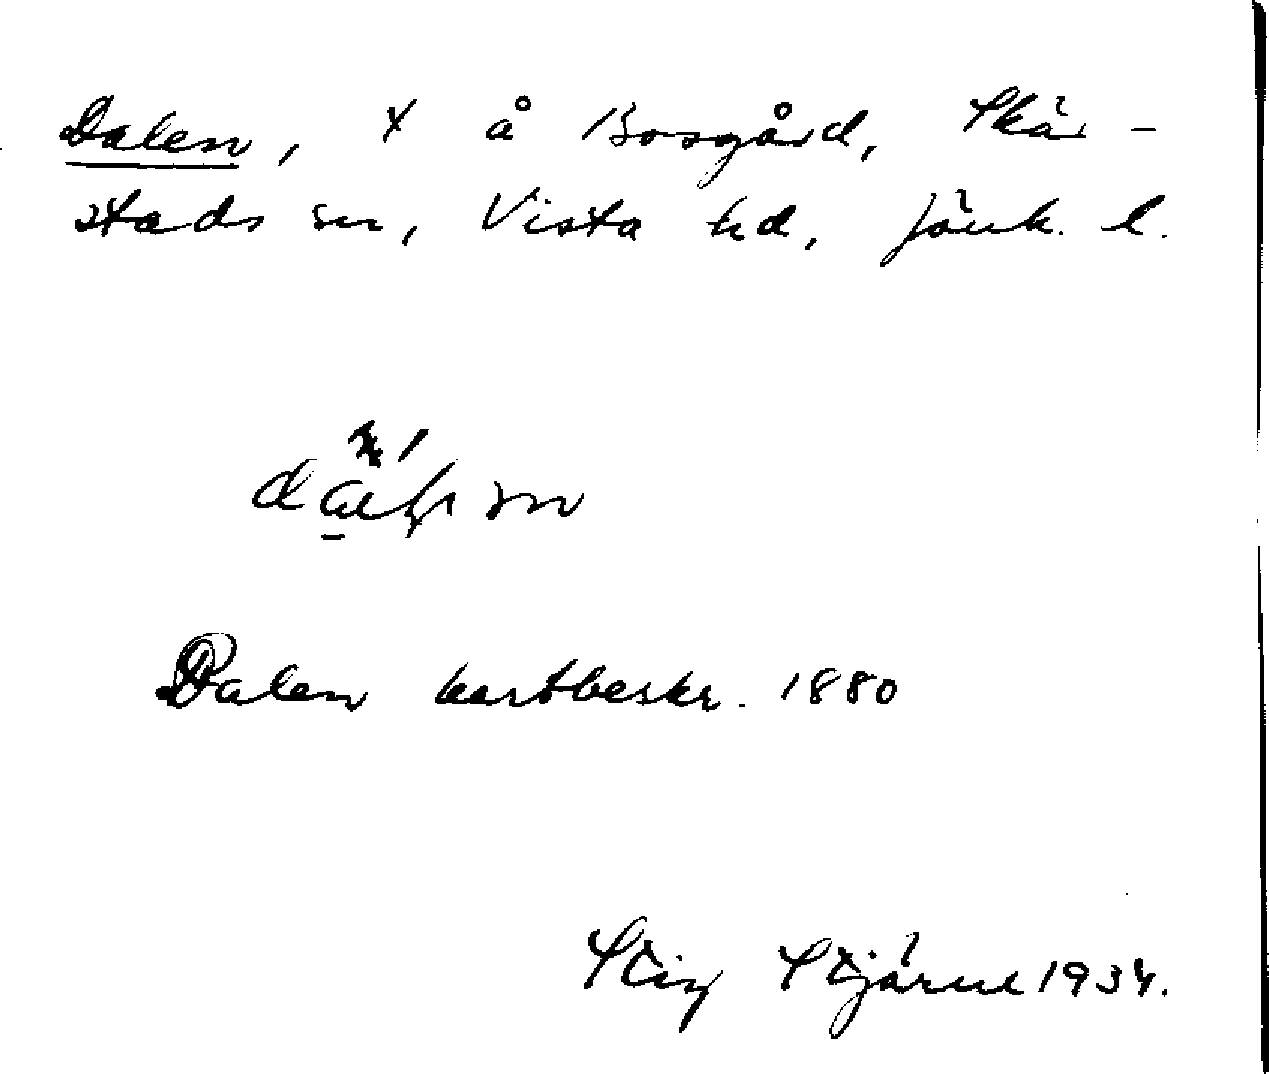 Dalen, x å Bosgård, Skär-
stads sn, Vista hd, Jönk. l.
Dalen kartbeskr. 1880
Stig Stjärne 1934.